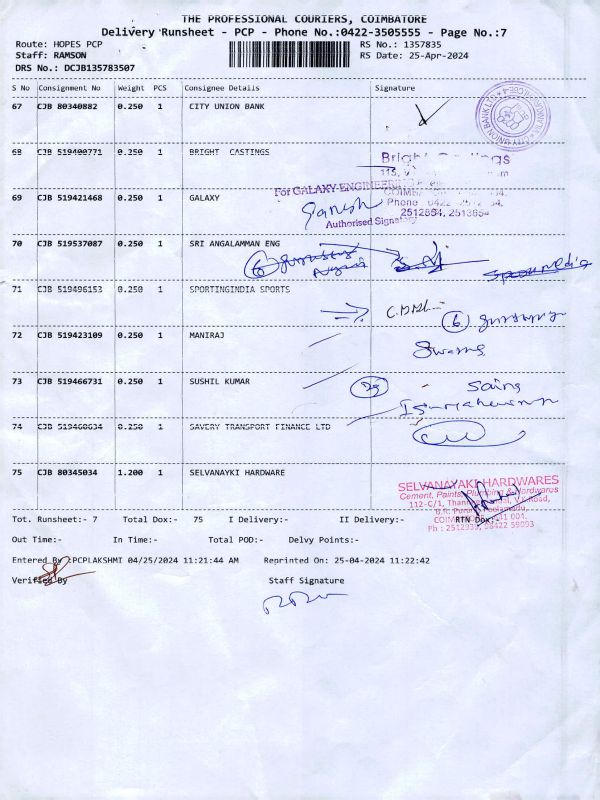 THE PROFESSIONAL COURIERS, COIMBATORE
Delivery Runsheet - PCP - Phone No.:0422-3505555 - Page No.:7
Route: HOPES PCP
RS No.: 1357835
Staff: RAMSON
RS Date: 25-Apr-2024
DRS No.: DCJB135783507
S No Consignment No Weight PCS Consignee Details Signature
67 CJB 80340882 0.250 1 CITY UNION BANK
CITY UNION BANK LTD
68 CJB 519400771 0.250 1 BRIGHT CASTINGS
Bright Castings
69 CJB 519421468 0.250 1 GALAXY
For GALAXY ENGINEERING
Phone 0422
2512884,
Ganesh
Authorised Signatory
70 CJB 519537087 0.250 1 SRI ANGALAMMAN ENG
71 CJB 519496153 0.250 1 SPORTINGINDIA SPORTS
6
72 CJB 519423109 0.250 1 MANIRAJ
73 CJB 519466731 0.250 1 SUSHIL KUMAR
74 CJB 519460634 0.250 1 SAVERY TRANSPORT FINANCE LTD
75 CJB 80345034 1.200 1 SELVANAYKI HARDWARE
SELVANAYAKI HARDWARES
Cement, Paints, Plumbing & Hardwares
112-C/1,
Tot. Runsheet:- 7 Total Dox:- 75 I Delivery:- II Delivery:- RTN Dox:-
Out Time:- In Time:- Total POD:- Delvy Points:-
Entered By :PCPLAKSHMI 04/25/2024 11:21:44 AM Reprinted On: 25-04-2024 11:22:42
Verified By Staff Signature